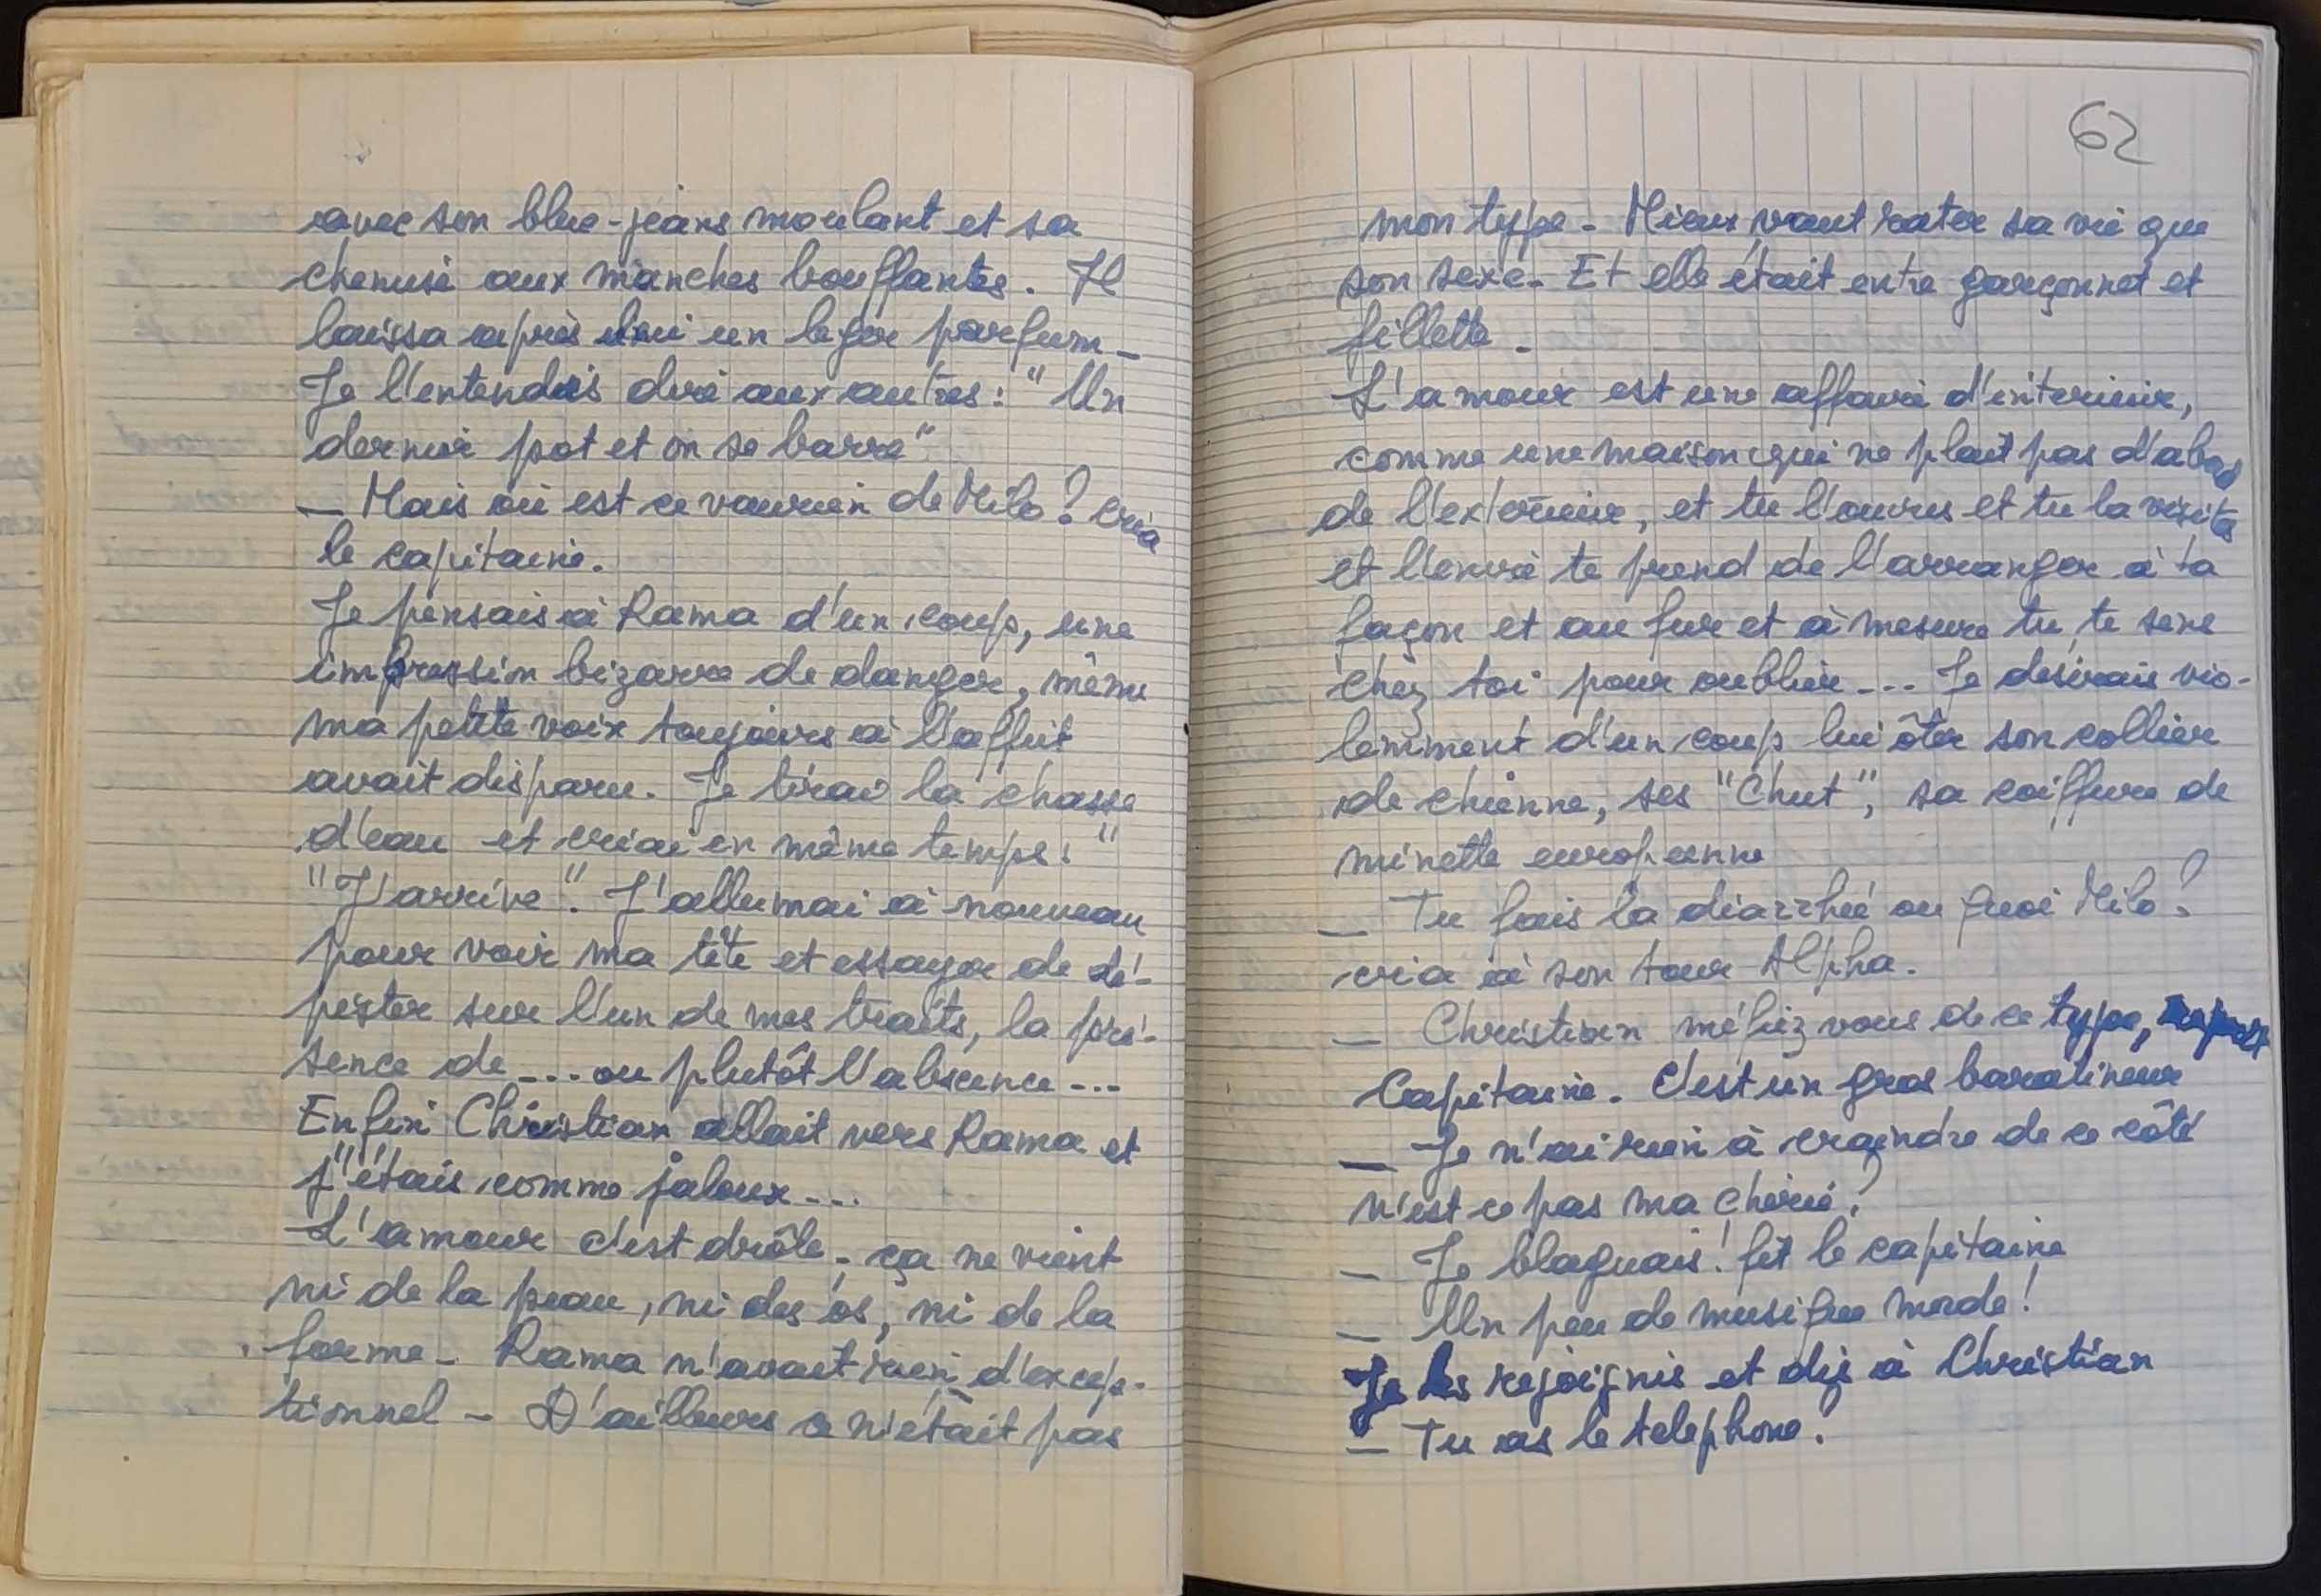 avec son blue-jeans moulant et sa
chemise aux manches bouffantes. Il
laissa après lui un leger parfum_
Je l'entendis dire aux autres : " Un
dernier pot et on se barre"
_ Mais où est ce vaurien de Milo ? cria
le capitaine.
Je pensais à Rama d'un coup, une
impression bizarre de danger, même
ma petite voix toujours à l'affut
avait disparu. Je tirai la chasse
d'eau et criai en même temps : "
"J'arrive". J'allumai à nouveau
pour voir ma tête et essayer de dé-
pister sur l'un de mes traits, la pré-
sence de _... ou plutôt l'abscence ...
Enfin Christian allait vers Rama et
j'étais comme jaloux...
L'amour c'est drôle _ ça ne vient
ni de la peau, ni des os, ni de la
forme _ Rama n'avait rien d'excep-
tionnel _ D'ailleurs ce n'était pas
62
mon type _ Mieux vaut rater sa vie que
son sexe _ Et elle était entre garçonnet et
fillette _
L'amour est une affaire d'interieur,
comme une maison qui ne plait pas d'abord
de l'exterieur, et tu l'ouvres et tu la visites
et l'envie te prend de l'arranger à ta
façon et au fur et à mesure tu te sens
chez toi pour oublier ... Je desirais vio-
lemment d'un coup lui ôter son collier
de chienne, ses "Chut", sa coiffure de
minette europeenne
_ Tu fais la diarrhée ou quoi Milo ?
cria à son tour Alpha.
_ Christian méfiez vous de ce type,
Capitaine. C'est un gros baratineur
_ Je n'ai rien à craindre de ce côté
n'est ce pas ma cherie ?
_ Je blaguais ! fit le capitaine
_ Un peu de musique merde !
Je les rejoignis et dis à Christian
_ Tu as le telephone ?